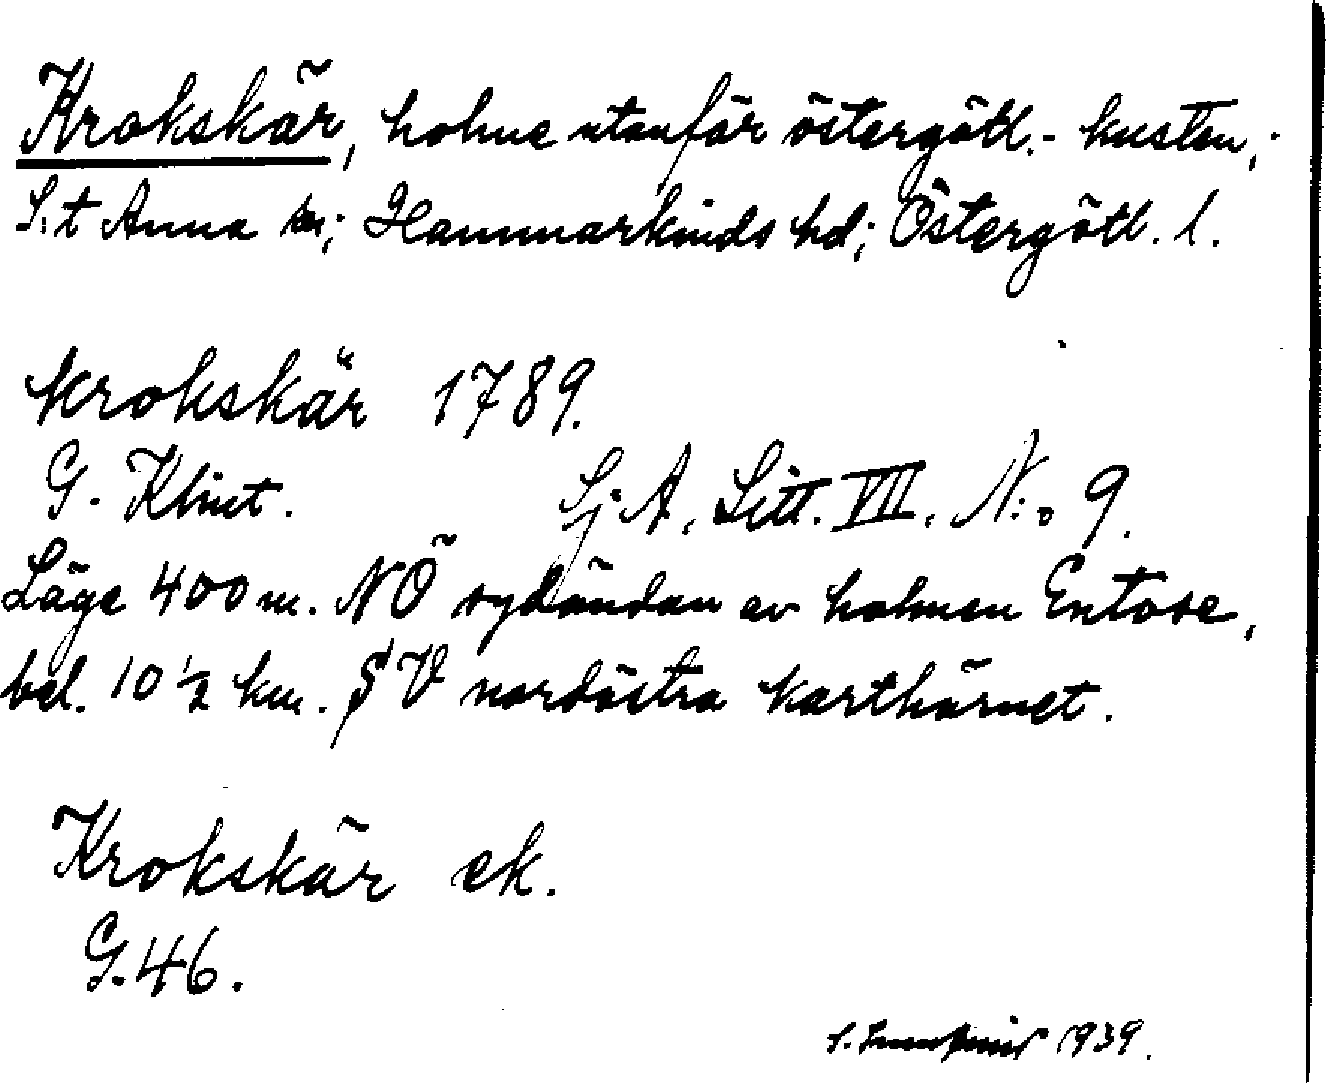 Krokskär, holme utanför östergötl.- kusten,;
S:t Anna sn; Hammarkinds hd; Östergötl. l.
Krokskär 1789.
G. Klint. Sj. A, Litt. VII. N:o 9.
Läge 400 m. NÖ sydändan av holmen Entose,
bel. 10 ½ km. SV nordöstra karthörnet.
Krokskär ek.
G.46.
S. 1939.